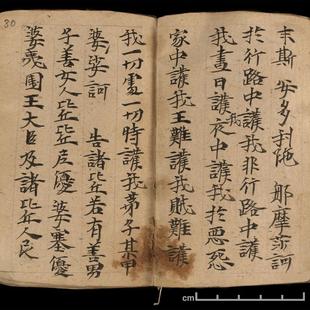 末斯 安多利陁 那摩莎訶
於行路中護我非行路中護
我晝日護我夜中護我於惡怨
家中護我王難護我賊難護
我一切處一切時護我弟子某甲
婆娑訶 告諸比丘若有善男
子善女人比丘比丘尼優婆塞優
婆夷國王大臣及諸比丘人民
30
cm